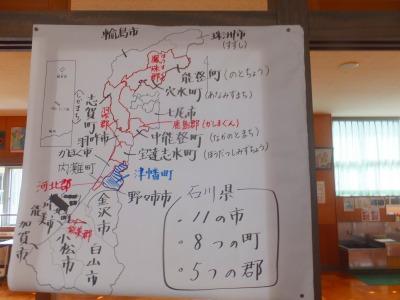 輪島市
珠洲市
(すずし)
鳳珠郡
能登町(のとちょう)
穴水町(あなみずまち)
七尾市
鹿島郡(かしまぐん)
中能登町(なかのとまち)
宝達志水町(ほうだつしみずちょう)
(しかまち)
志賀町
羽咋郡
羽咋市
かほく市
河北郡
内灘町
津幡町
金沢市
野々市市
白山市
能美市
小松市
加賀市
石川県
・11の市
・8つの町
・5つの郡